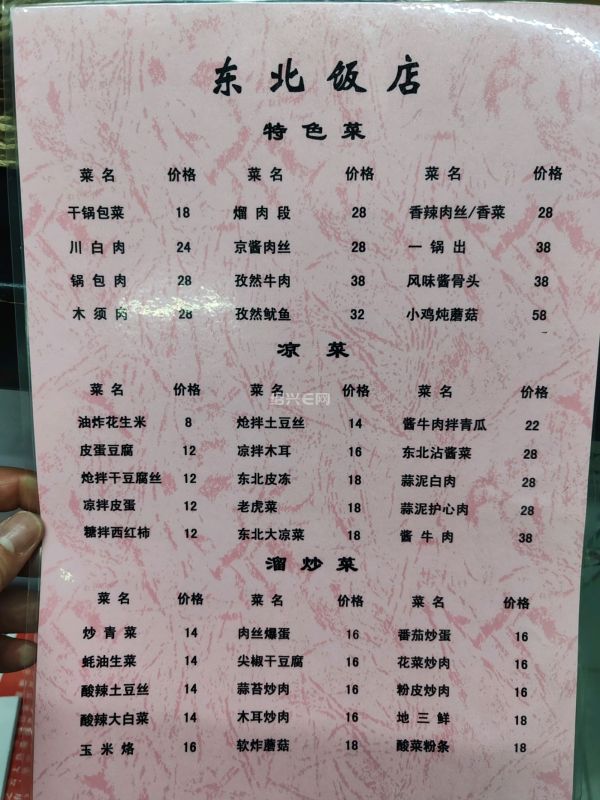 东北饭店
特色菜
菜名 价格 菜名 价格 菜名 价格
干锅包菜 18 熘肉段 28 香辣肉丝/香菜 28
川白肉 24 京酱肉丝 28 一锅出 38
锅包肉 28 孜然牛肉 38 风味酱骨头 38
木须肉 28 孜然鱿鱼 32 小鸡炖蘑菇 58
凉菜
菜名 价格 菜名 价格 菜名 价格
绍兴E网
油炸花生米 8 炝拌土豆丝 14 酱牛肉拌青瓜 22
皮蛋豆腐 12 凉拌木耳 16 东北沾酱菜 28
炝拌干豆腐丝 12 东北皮冻 18 蒜泥白肉 28
凉拌皮蛋 12 老虎菜 18 蒜泥护心肉 28
糖拌西红柿 12 东北大凉菜 18 酱牛肉 38
溜炒菜
菜名 价格 菜名 价格 菜名 价格
炒青菜 14 肉丝爆蛋 16 番茄炒蛋 16
蚝油生菜 14 尖椒干豆腐 16 花菜炒肉 16
酸辣土豆丝 14 蒜苔炒肉 16 粉皮炒肉 16
酸辣大白菜 14 木耳炒肉 16 地三鲜 18
玉米烙 16 软炸蘑菇 18 酸菜粉条 18